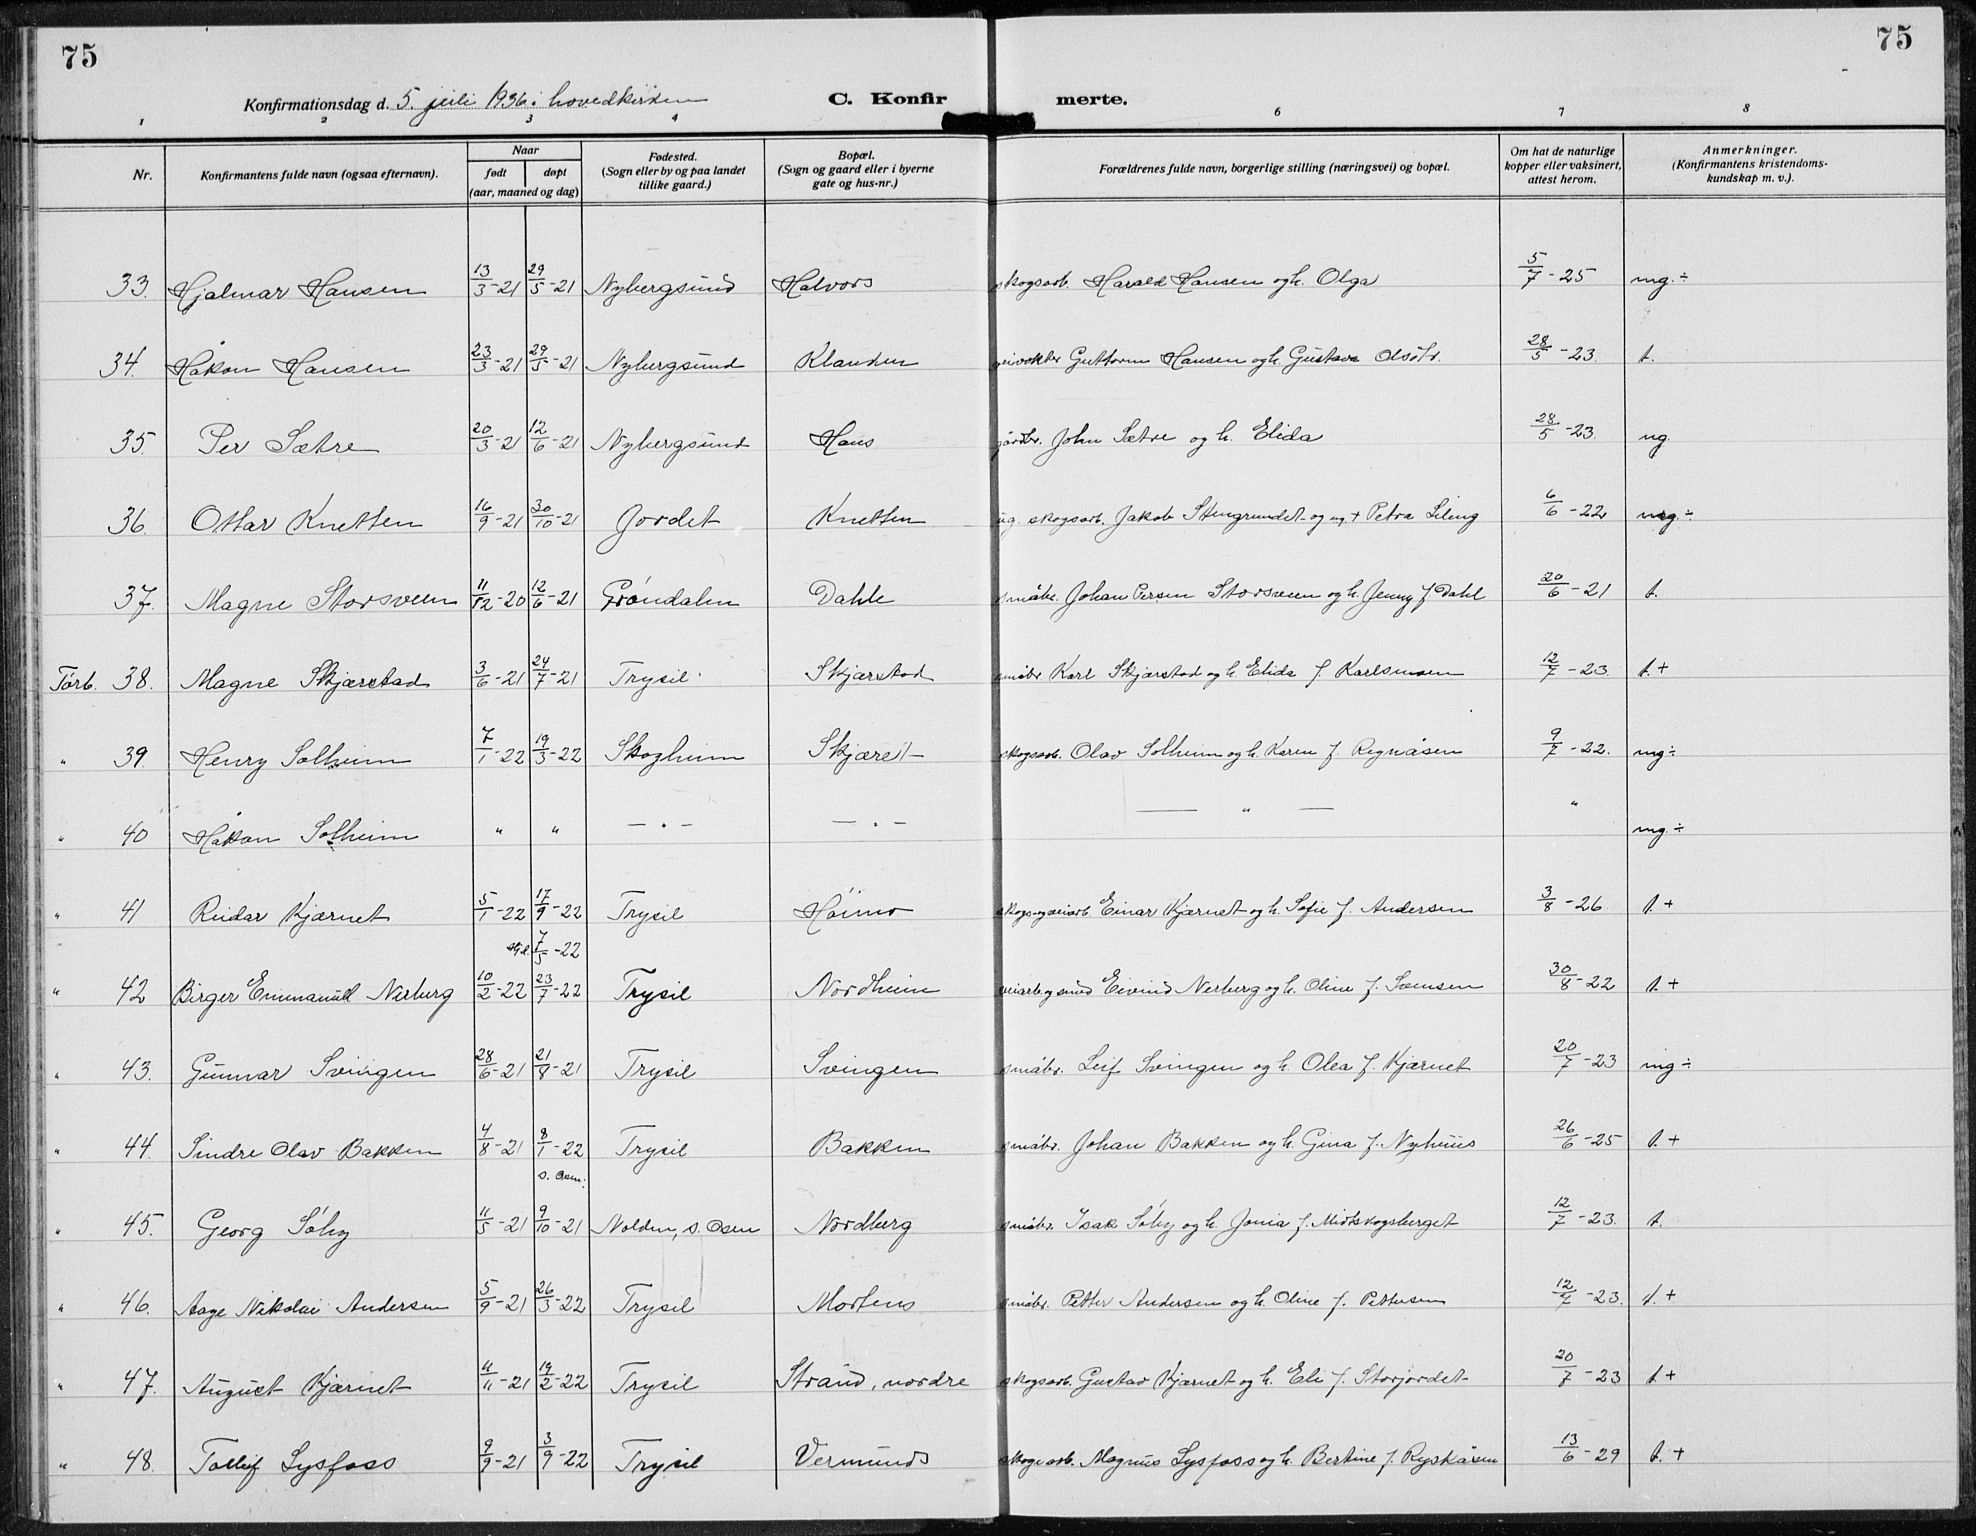 75
75
Konfirmationsdag d. 5. juli 1936 i hovedkirken
C. Konfirmerte.
1 2 3 4 6 7 8
Nr.
Konfirmantens fulde navn (ogsaa efternavn).
Naar
født døpt
(aar, maaned og dag)
Fødested.
(Sogn eller by og paa landet
tillike gaard.)
Bopæl.
(Sogn og gaard eller i byerne
gate og hus-nr.)
Forældrenes fulde navn, borgerlige stilling (næringsvei) og bopæl.
Om hat de naturlige
kopper eller vaksinert,
attest herom.
Anmerkninger.
(Konfirmantens kristendoms-
kundskap m. v.).
33. Hjalmar Hansen 13/3-21 29/5-21 Nybergsund Halvors skogsarb. Harald Hansen og h. Olga 5/7-25 mg. ÷
34. Håkon Hansen 23/3-21 29/5-21 Nybergsund Klanden veivokter Guttorm Hansen og h. Gustava Olsdtr. 28/5-23. t.
35. Per Sætre 20/3-21 12/6-21 Nybergsund Hans gårdbr. John Sætre og h. Elida 28/5-23. ng.
36. Ottar Knetten 16/9-21 30/10-21 Jordet Knetten ug. skogsarb. Jakob Stengrundet og ug. + Petra Liling 6/6-22 mg. ÷
37. Magne Storsveen 11/12-20 12/6-21 Grøndalen Dahle småbr. Johan Persen Storsveen og h. Jenny f Dahl 20/6-21 t.
Tørb. 38. Magne Skjærstad 3/6-21 24/7-21 Trysil Skjærstad småbr Karl Skjærstad og h. Elida f Karlsmoen 12/7-23. t. +
" 39. Henry Solheim 7/1-22 19/3-22 Skogheim Skjæret skogsarb. Olav Solheim og h. Karen f Regnåsen 9/7-22. mg ÷
" 40 Håkon Solheim " " — " — — " — — " — " mg. ÷
" 41 Reidar Kjærnet 5/1-22 17/9-22 Trysil Høimo skogs- og veiarb. Einar Kjærnet og h. Sofie f. Andersen 3/8-26 t. +
7/5-22
" 42 Birger Emmanuell Nerberg 10/2-22 23/7-22 Trysil Nordheim veiarb og smed Eivind Nerberg og h. Oline f. Soensen 30/8-22 t. +
" 43. Gunnar Svingen 28/6-21 21/8-21 Trysil Svingen småbr. Leif Svingen og h. Olea f. Kjærnet 20/7-23 mg ÷
" 44. Sindre Olav Bakken 4/8-21 8/1-22 Trysil Bakken småbr. Johan Bakken og h. Gina f. Nyhuus 26/6-25 t. +
s. Osen.
" 45. Georg Søby 11/5-21 9/10-21 Nolden, s. Osen Nordberg småbr. Isak Søby og h. Jonia f. Midtskogsberget 12/7-23. t.
" 46. Aage Nikolai Andersen 5/9-21 26/3-22 Trysil Mortens småbr. Petter Andersen og h. Oline f. Pettersen 12/7-23. t. +
" 47. August Kjærnet 4/11-21 19/2-22 Trysil Strand, nordre skogsarb. Gustav Kjærnet og h. Eli f. Storjordet 20/7-23 t. +
" 48. Tollef Lysfoss 9/9-21 3/9-22 Trysil Vermunds skogsarb. Magnus Lysfoss og h. Bertine f. Ryskåsen 13/6-29 t. +